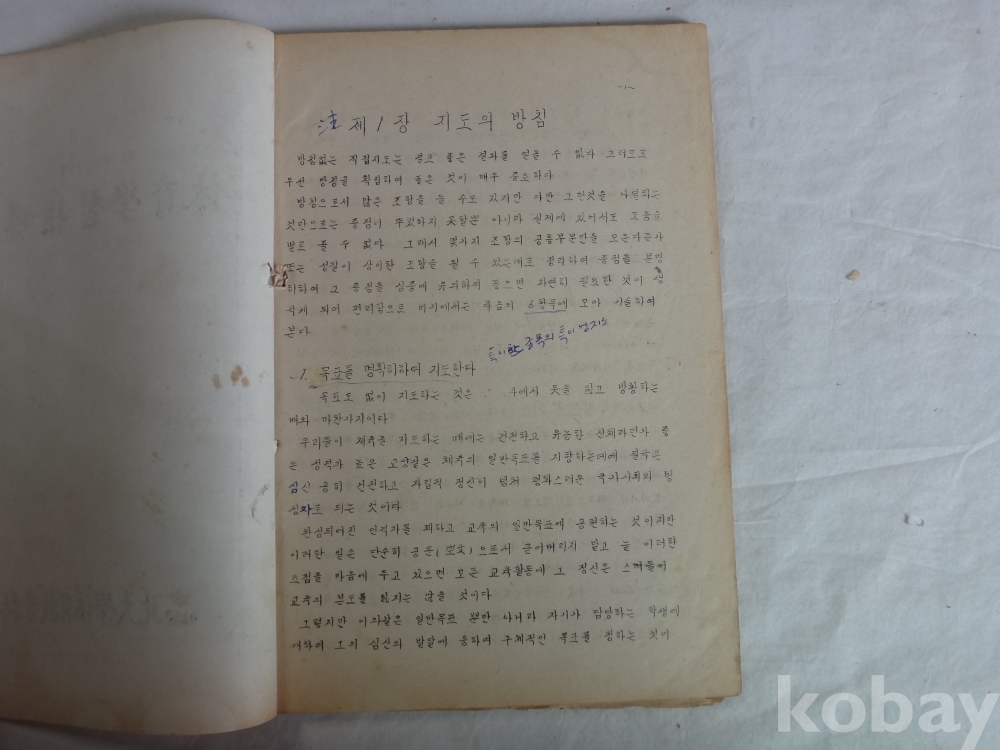 注 제 1 장 지도의 방침
방침없는 직접지도는 결코 좋은 결과를 얻을 수 없다 그러므로
우선 방침을 확립하여 놓은 것이 매우 중요하다
방침으로서 많은 조항을 들 수도 있지만 다만 그런것을 나열하는
것만으로는 중점이 뚜렷하지 못할뿐 아니라 실제에 있어서도 도움을
수 없다 그래서 몇가지 조항의 공통부분만을
또는 성질이 상이한 조항을 될 수 있는대로 정리하여 중점을
하하여 그 중점을 심중에 두면 자연히 필요한 것이 생
되어 편리함으로 여기에서는 6항목에 모아 기술하여
본다
특이한 종목의 특이
1. 목표를 명확히하여 지도한다
목표도 없이 지도하는 것은 에서 돛을 잃고 방황하는
배와 마찬가지이다
우리들이 체육을 지도하는 때에는 건전하고 유능한 신체라던가 좋
은 성격과 높은 교양같은 체육의 일반목표를 지향하는데에
심신 공히 건전하고 정신이 평화스러운 국가사회의
되는 것이다
완성되어진 인격자를 꾀하고 교육의 일반목표에 공헌하는 것이지만
이러한 일은 단순히 공문(空文)으로서 끝어버리지 말고 늘 이러한
마음에 두고 있으면 모든 교육활동에 그 정신은 스며들어
교육의 본도를 잃지는 않을 것이다
그렇지만 이와같은 일반목표 뿐만 아니라 자기가 담당하는 학생에
대하여 그의 심신의 발달에 응하여 구체적인 목표를 정하는 것이
kobay